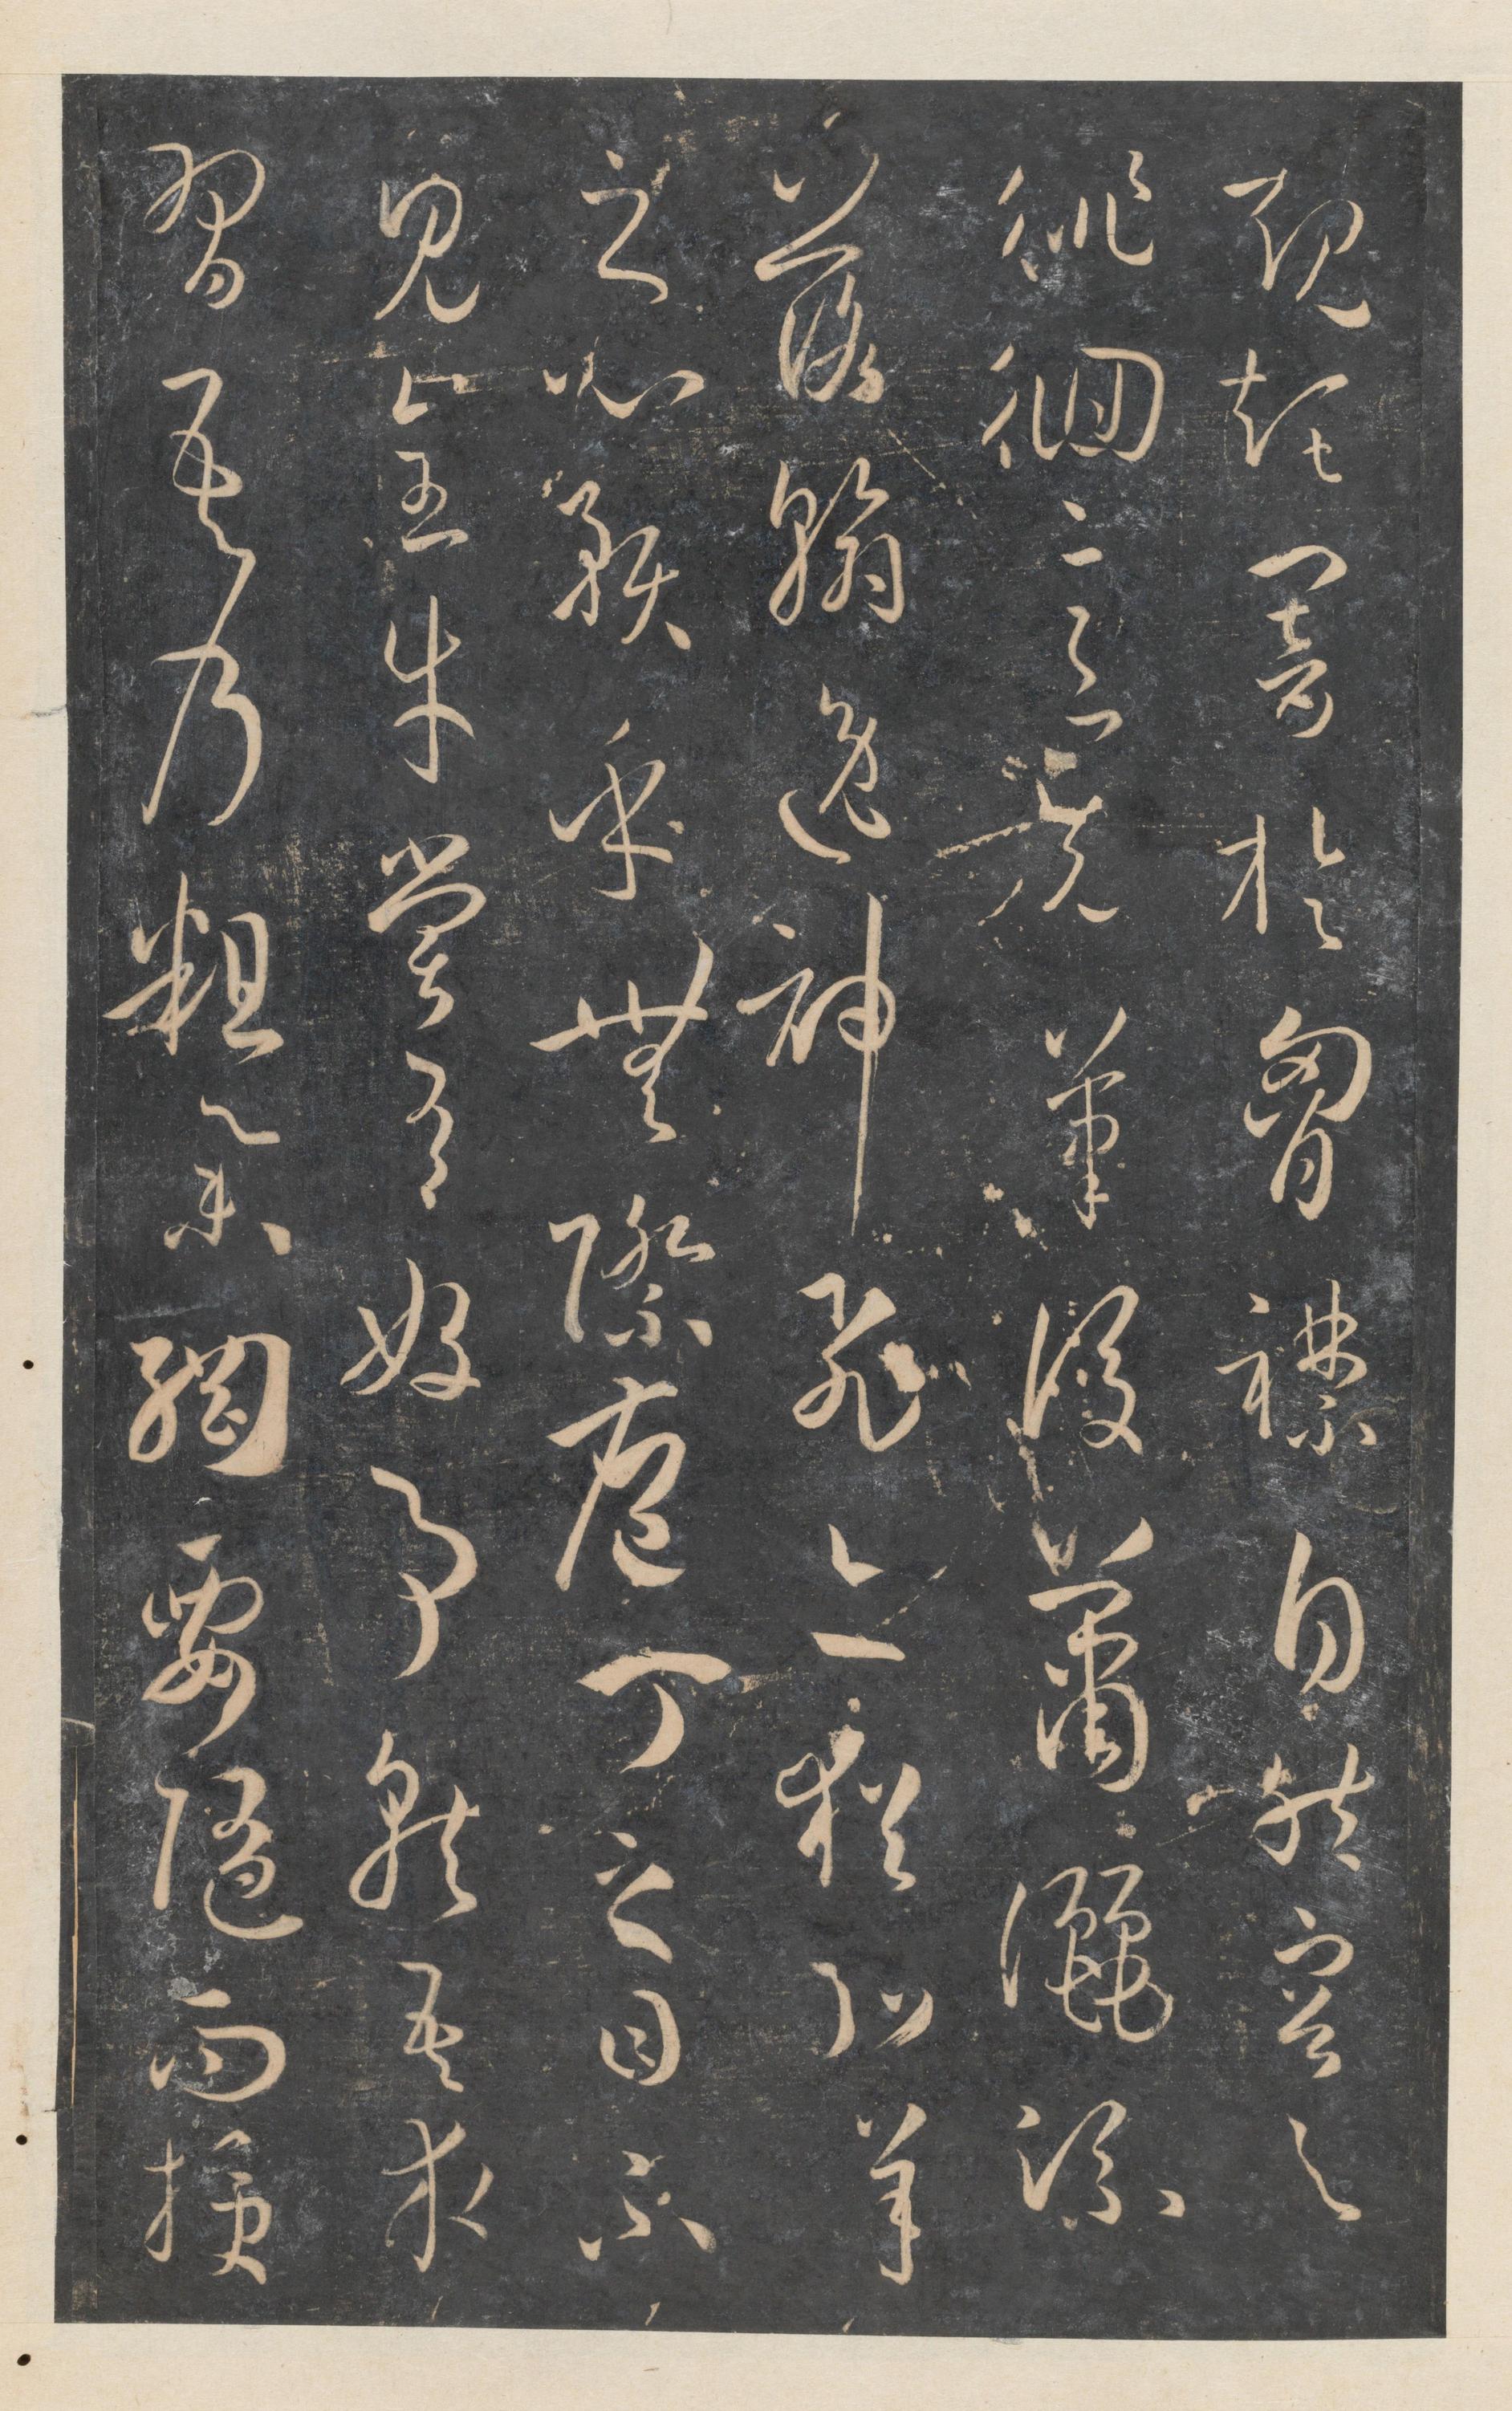 規矩闇於胷襟自然容與
徘徊意先筆後蕭灑流
落翰逸神飛亦猶弘羊
之心預乎無際庖丁之目不
見全牛嘗有好事就吾求
習吾乃粗舉綱要隨而授